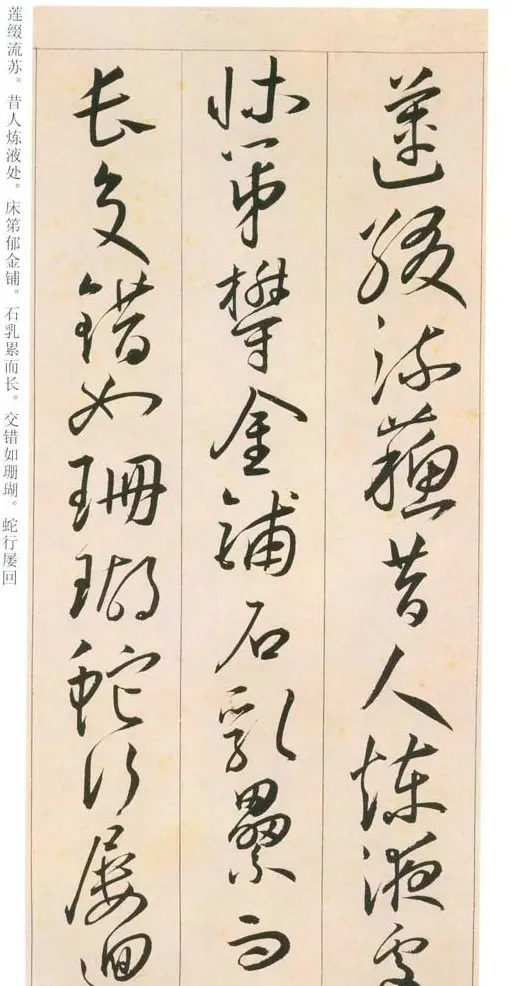 蓮綴流蘇昔人煉液處
床笫鬱金鋪石乳纍而
長交錯如珊瑚蛇行屢迴
莲缀流苏。昔人炼液处。床第郁金铺。石乳累而长。交错如珊瑚。蛇行屡回